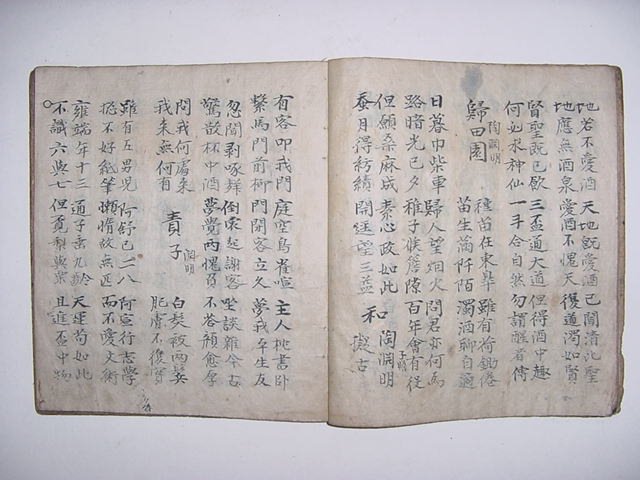 地若不愛酒 天地既愛酒 已聞清比聖
地應無酒泉 愛酒不愧天 復道濁如賢
賢聖既已飲 三盃通大道 但得酒中趣
何必求神仙 一斗合自然 勿謂醒者傳
歸田園 陶淵明 種苗在東皐 雖有荷鋤倦
苗生滿阡陌 濁酒聊自適
日暮巾柴車 歸人望烟火 問君亦何為
路暗光已夕 稚子候簷隙 百年會有役
但願桑麻成 素心政如此 和陶淵明
蚕月得紡績 開逕望三益 擬古
有客叩我門 庭空鳥雀喧 主人枕書卧
繫馬門前柳 門閉客立久 夢我平生友
忽聞剥啄聲 倒裳起謝客 坐談雜今古
驚散杯中酒 夢覺兩愧負 不答顏愈厚
問我何處來
我來無何有
責子 淵明 白髮被兩鬢
肥膚不復實
雖有五男児 阿舒已二八 阿宣行志學
摠不好紙筆 懶惰故無匹 而不愛文術
雍端年十三 通子垂九齡 天運苟如此
不識六與七 但覓梨與栗 且進盃中物